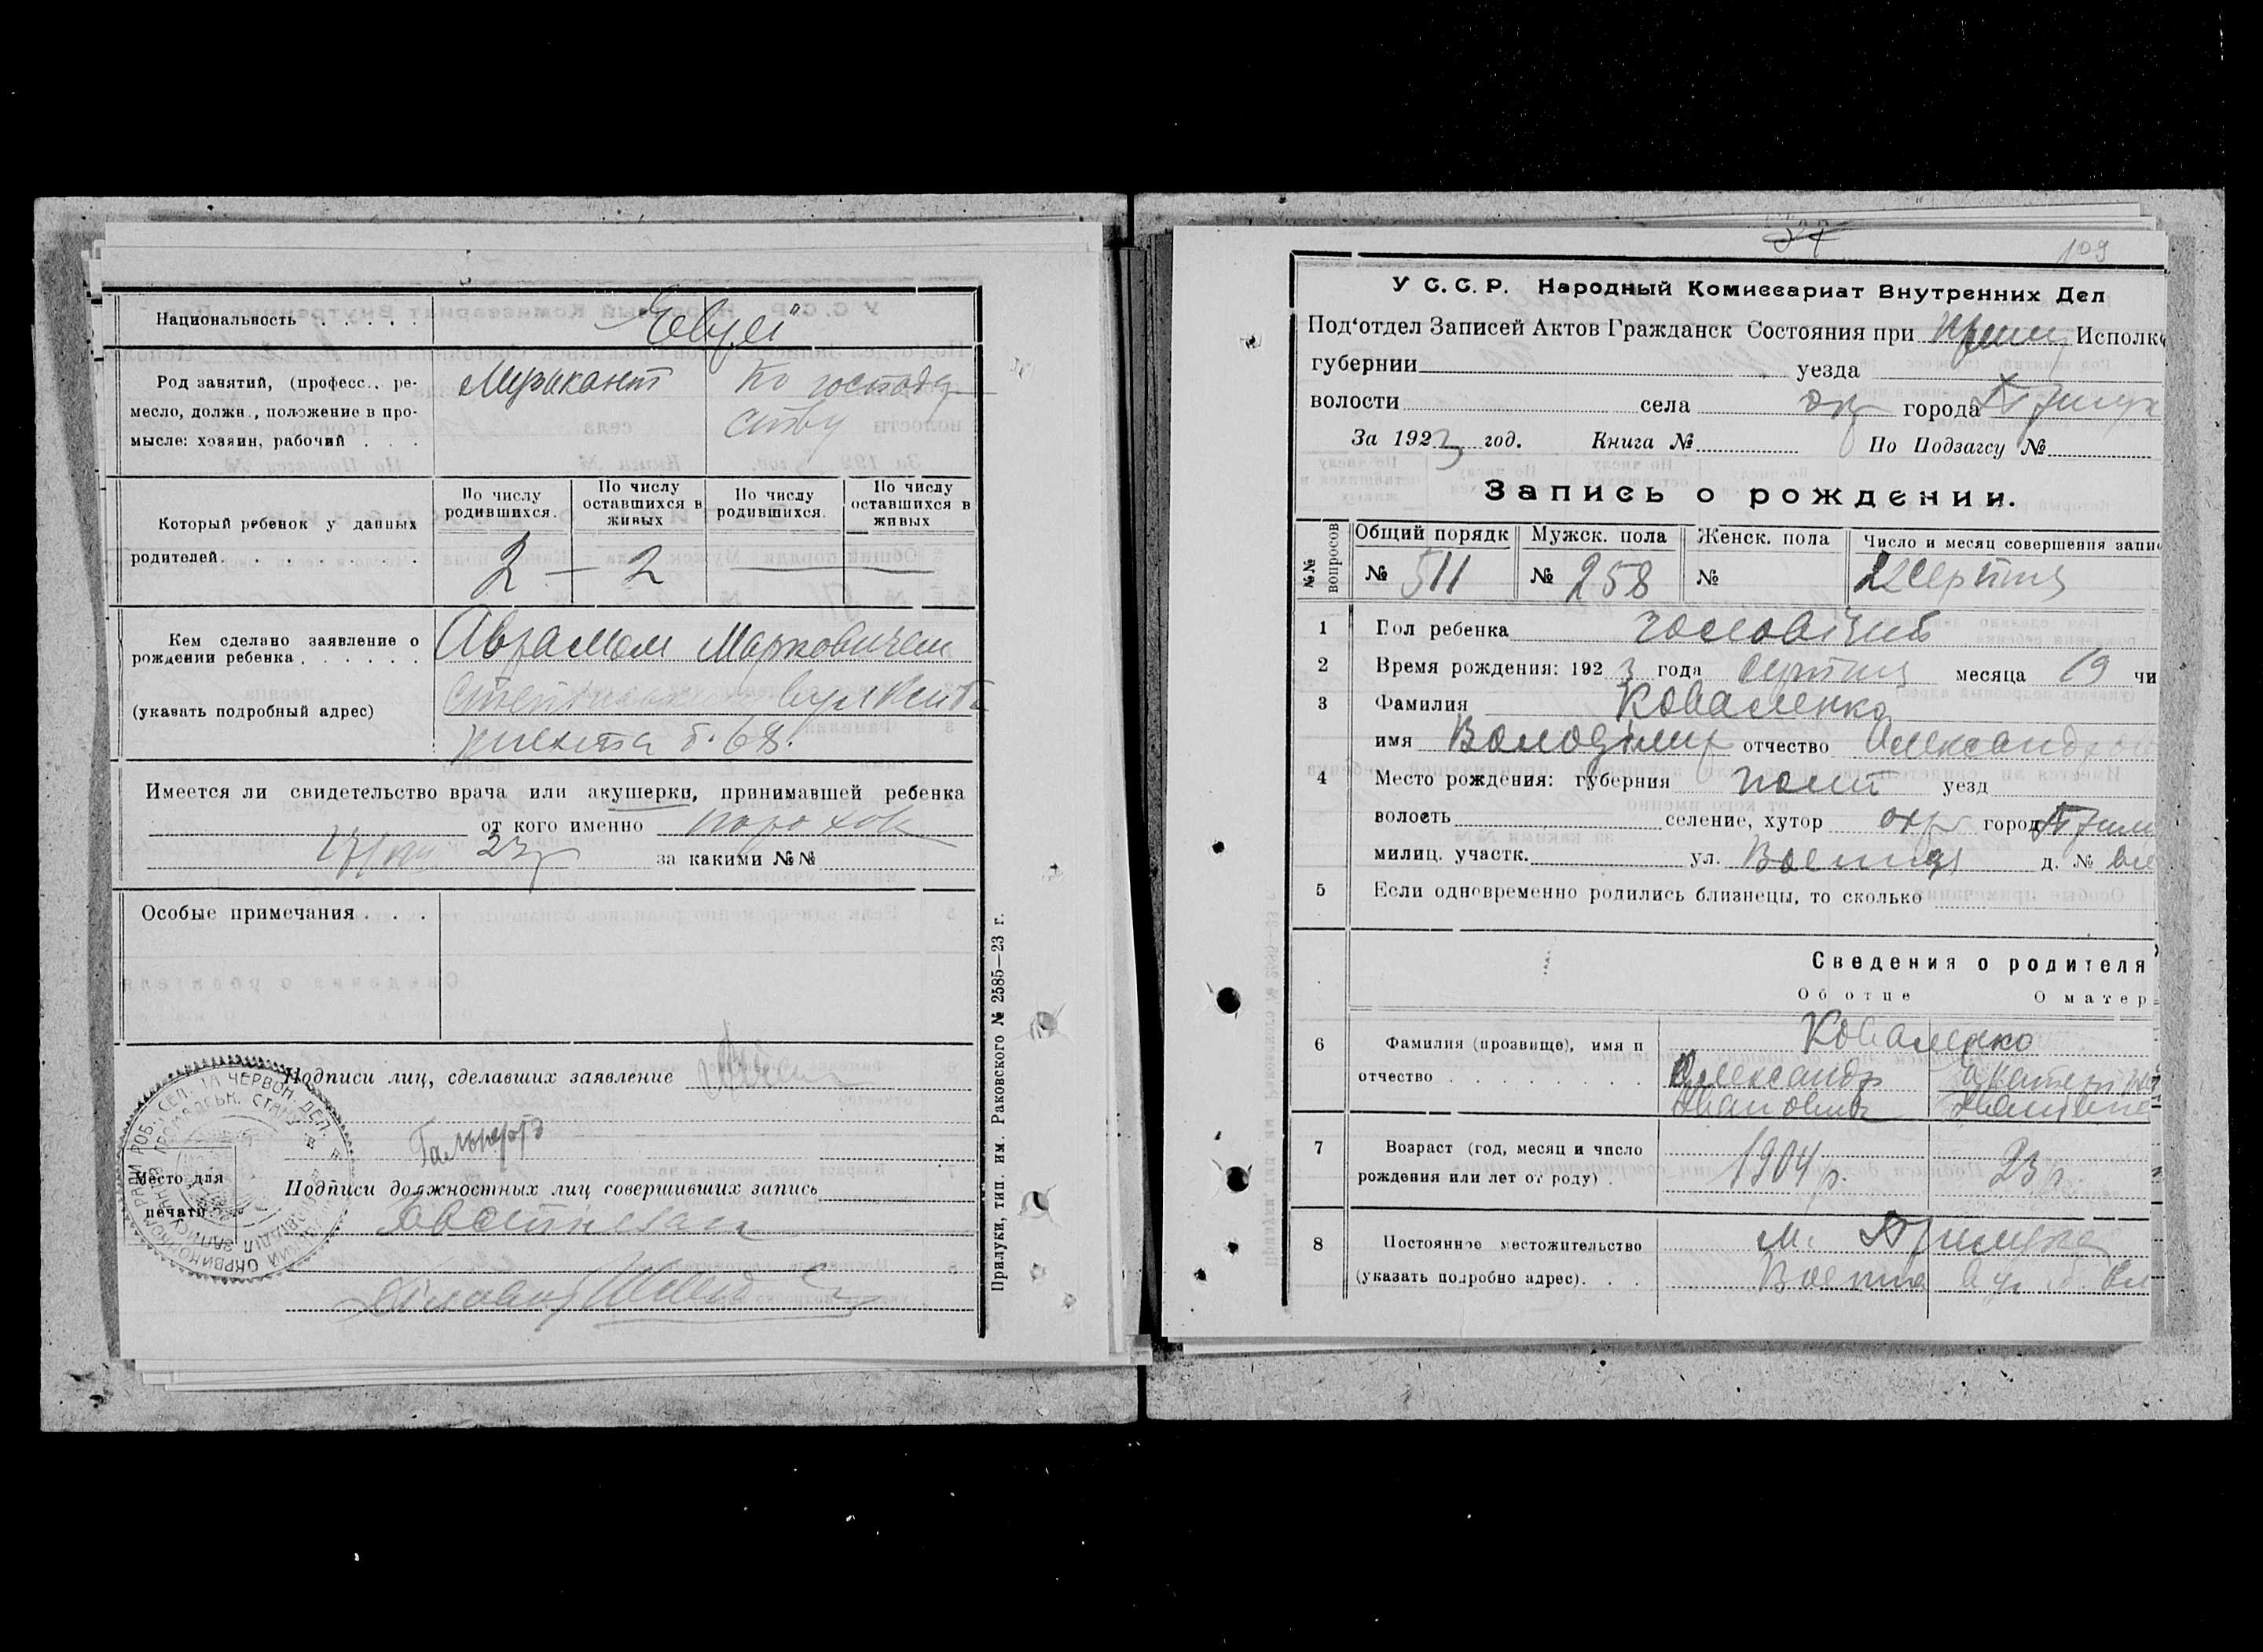 Национальность . . . . .
Евреї
Род занятий, (професс., ре-
месло, должн., положение в про-
мысле: хозяин, рабочий . . .
Музыкант
по господар
ству
Который ребенок у данных
родителей. . . . . . . .
По числу
родившихся.
По числу
оставшихся в
живых
По числу
родившихся.
По числу
оставшихся в
живых
2 — 2
Кем сделано заявление о
рождении ребенка . . . . . .
(указать подробный адрес)
Аврамом Марковичем
б. 68.
Имеется ли свидетельство врача или акушерки, принимавшей ребенка
от кого именно
23 р за какими №№
Особые примечания . . .
Подписи лиц, сделавших заявление
Гальперт
Место для
печати.
Подписи должностных лиц совершивших запись
Діловод
Прилуки, тип. им. Раковского № 2585—23 г.
109
У С. С. Р. Народный Комиссариат Внутренних Дел
Под'отдел Записей Актов Гражданск Состояния при Прилу Исполк
губернии уезда
волости села окр города Прилук
За 1923 год. Книга № По Подзагсу №
Запись о рождении.
№№ вопросов
Общий порядк
Мужск. пола
Женск. пола
Число и месяц совершения запис
№ 511
№ 258
№
22 серпня
1 Пол ребенка чоловічий
2 Время рождения: 1923 года серпня месяца 19 чи
3 Фамилия Коваленко
имя Володімир отчество Александров
4 Место рождения: губерния Полт уезд
волость селение, хутор окр город Прилу
милиц. участк. ул. Военная д. № вл
5 Если одновременно родились близнецы, то сколько
Сведения о родителя
Об отце
О матер
6 Фамилия (прозвище), имя и
отчество . . . . . . . . .
Коваленко
Александр
Иванович
Катерина
Ивановна
7 Возраст (год, месяц и число
рождения или лет от роду) .
1904 р.
23 р.
8 Постоянное местожительство
(указать подробно адрес). . .
м. Прилука
Военна вул вл